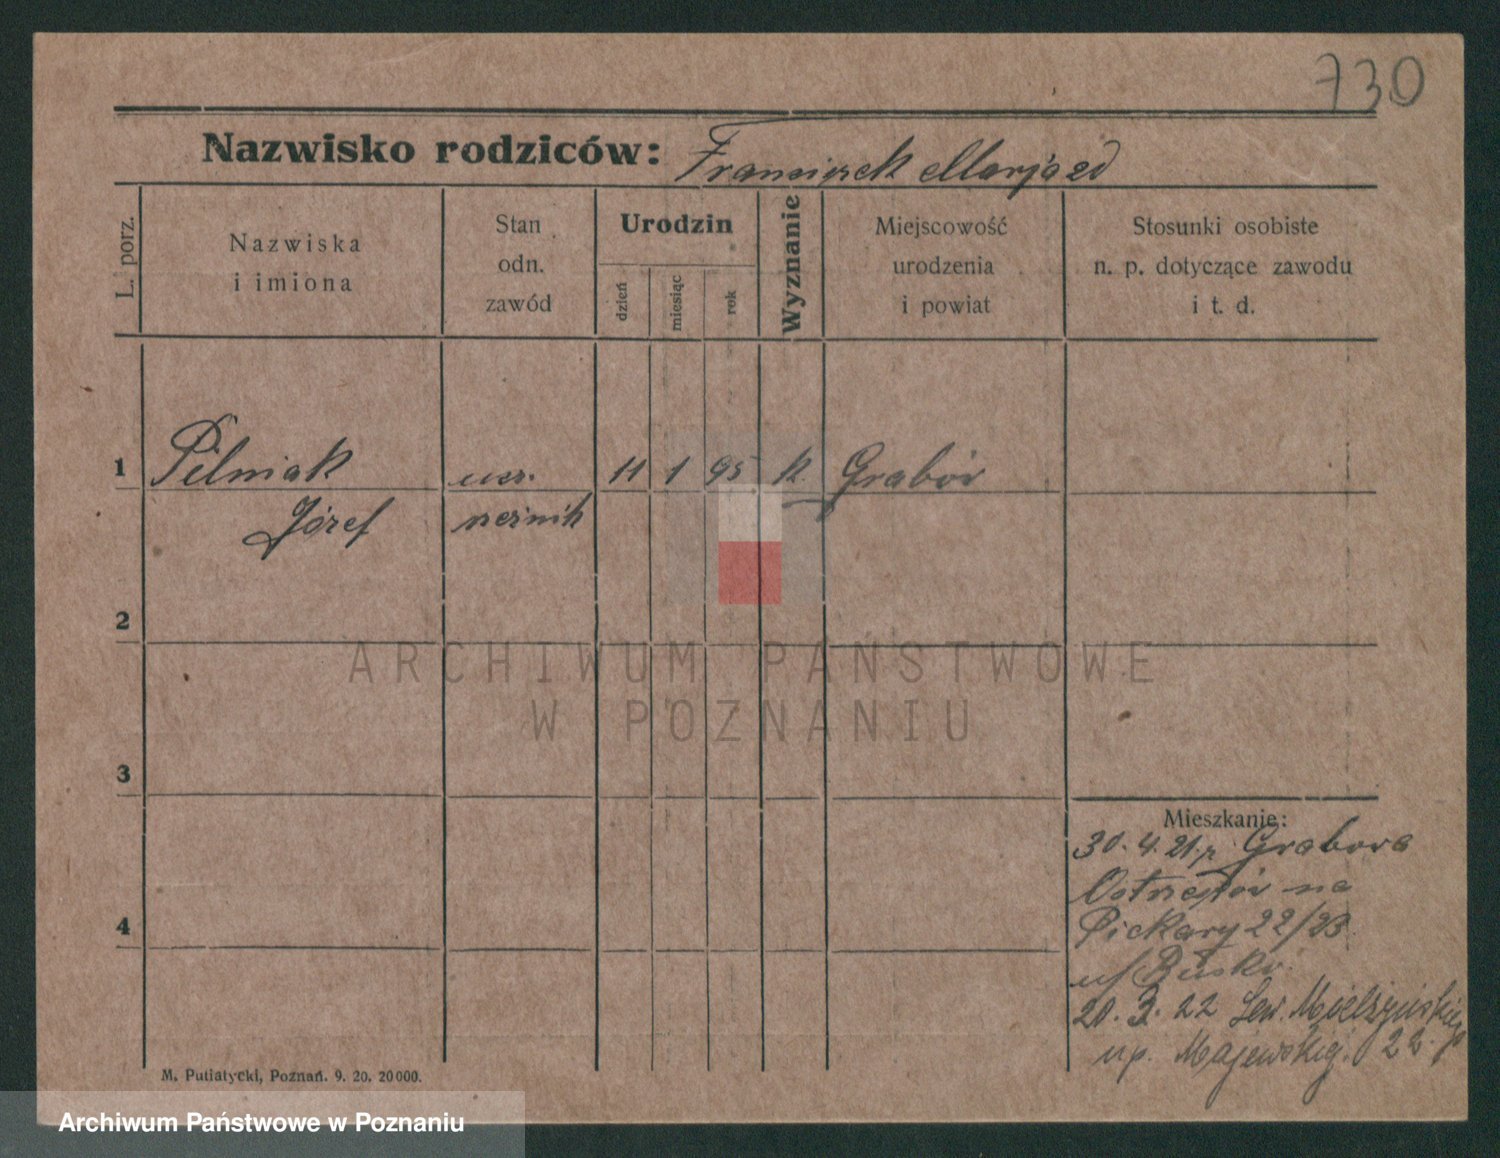 730
Nazwisko rodziców: Franciszek Marja
L. porz.
Nazwiska
i imiona
Stan
odn.
zawód
Urodzin
dzień
miesiąc
rok
Wyznanie
Miejscowość
urodzenia
i powiat
Stosunki osobiste
n. p. dotyczące zawodu
i t. d.
1 Pilniak ucz. 11 1 95 k. Grabów
Józef rzeźnik
2
ARCHIWUM PAŃSTWOWE
W POZNANIU
3
Mieszkanie:
30. 4. 21. z Grabowa
Ostrzeszów na
4
Piekary 22/23
u/
20. 3. 22 Sew. Mielżyńskiego
up. Majewskiej. 22.
M. Putiatycki, Poznań. 9. 20. 20000.
Archiwum Państwowe w Poznaniu